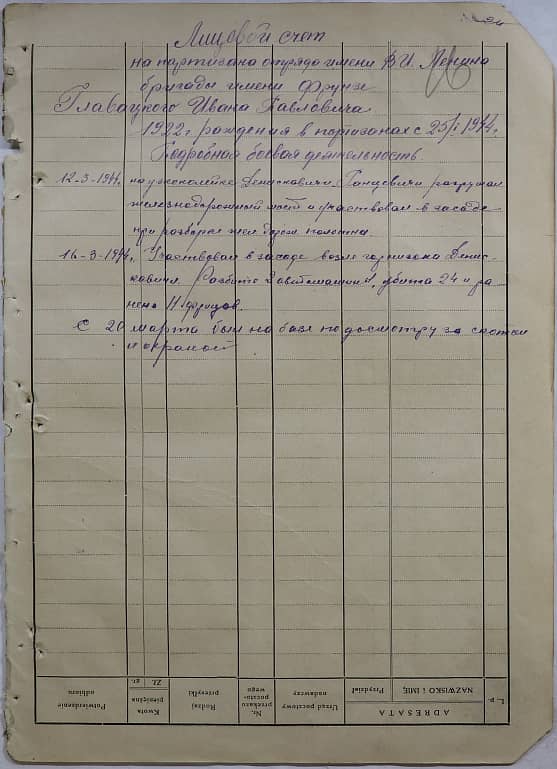 Лицевой счет
на партизана отряда имени В.И. Ленина
бригады имени Фрунзе
Главацкого Ивана Павловича
1922 г. рождения в партизанах с 25/I 1944 г.
Подробная боевая деятельность.
12-3-1944 г. на узкоколейке Денисковичи Ганцевичи разрушал
железнодорожный мост и участвовал в засаде
при разборке жел дорож полотна.
16-3-1944 г. Участвовал в засаде возле гарнизона Денис-
ковичи. Разбито 2 автомашины, убито 24 и ра-
нено 11 фрицов.
С 20 марта был на базе по досмотру за скотом
и охраной
L. p.
ADRESATA
NAZWISKO i IMIĘ
Przydział
Urząd pocztowy
nadawczy
Nr.
przekazu
poczto-
wego
Rodzaj
przesyłki
Kwota
pieniężna
Zł.
gr.
Potwierdzenie
odbioru